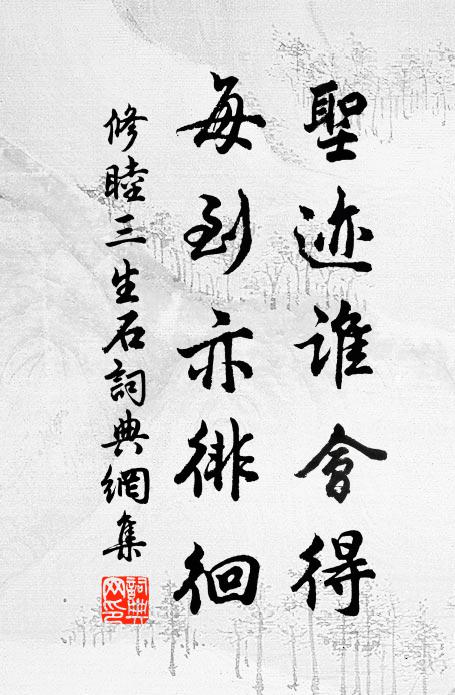 聖迹谁會得
每到亦徘徊
修睦三生石詞典網集